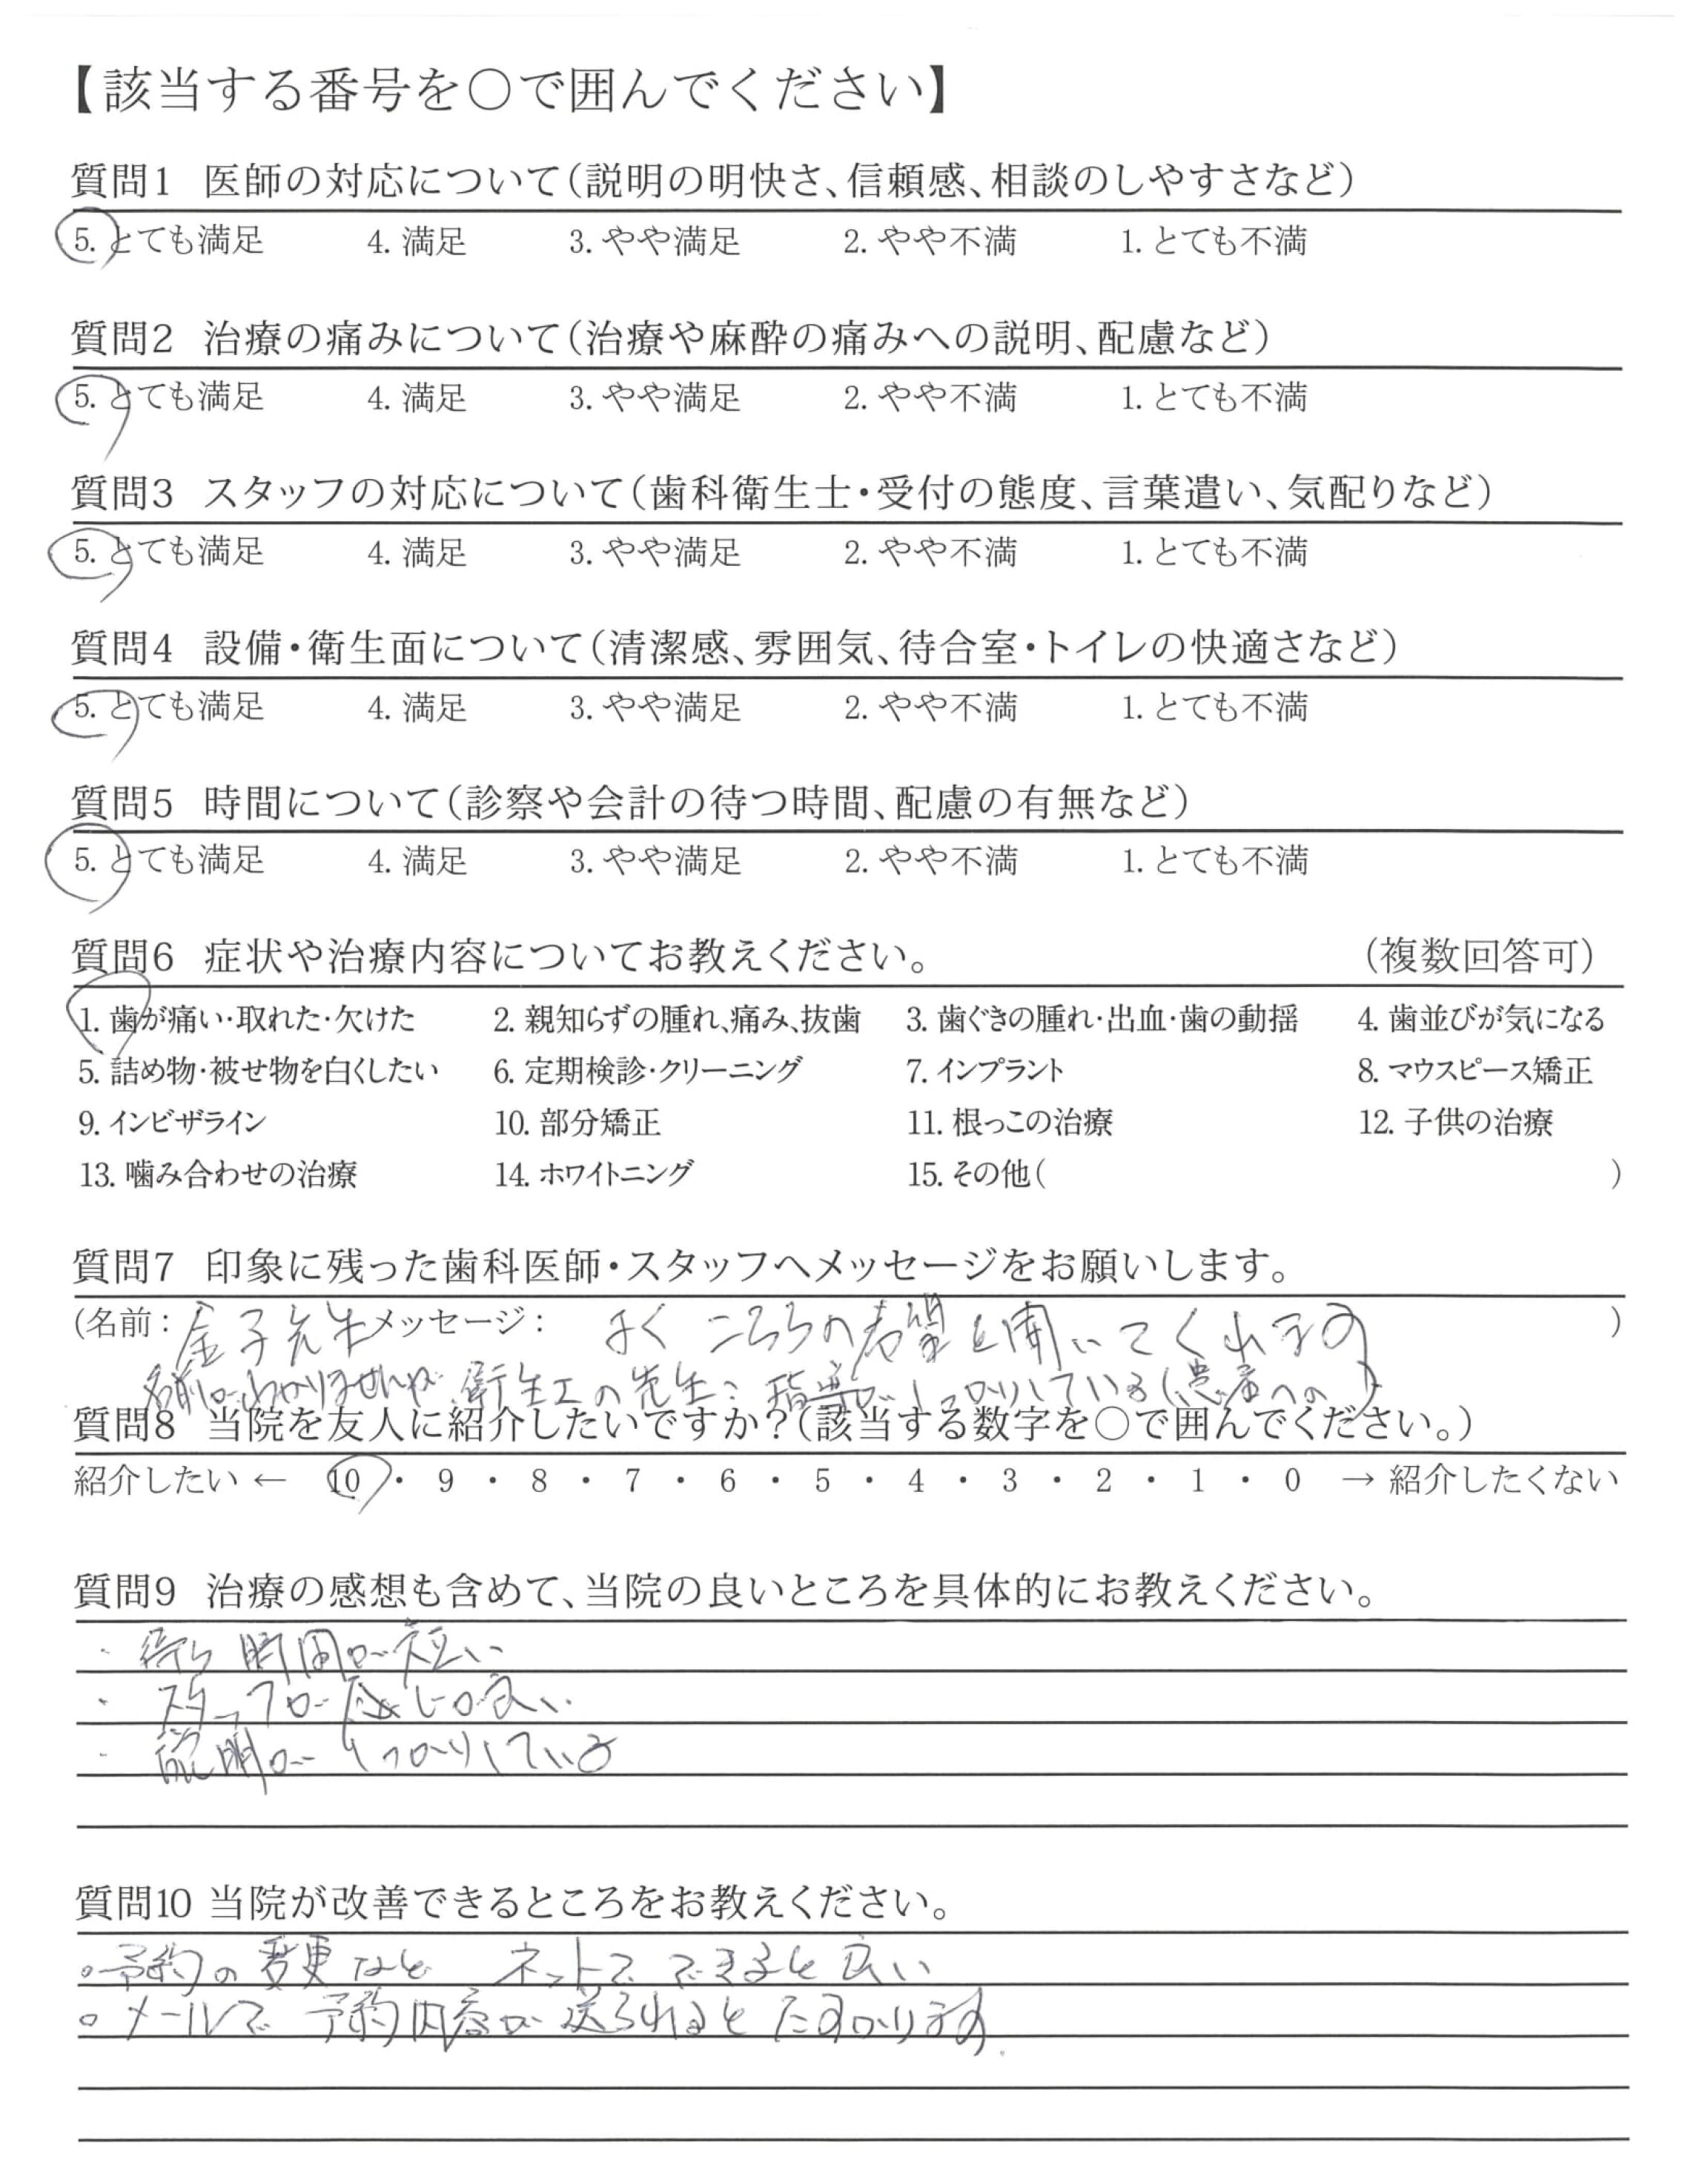 【該当する番号を○で囲んでください】
質問1 医師の対応について(説明の明快さ、信頼感、相談のしやすさなど)
5. とても満足 4. 満足 3. やや満足 2. やや不満 1. とても不満
質問2 治療の痛みについて(治療や麻酔の痛みへの説明、配慮など)
5. とても満足 4. 満足 3. やや満足 2. やや不満 1. とても不満
質問3 スタッフの対応について(歯科衛生士・受付の態度、言葉遣い、気配りなど)
5. とても満足 4. 満足 3. やや満足 2. やや不満 1. とても不満
質問4 設備・衛生面について(清潔感、雰囲気、待合室・トイレの快適さなど)
5. とても満足 4. 満足 3. やや満足 2. やや不満 1. とても不満
質問5 時間について(診察や会計の待つ時間、配慮の有無など)
5. とても満足 4. 満足 3. やや満足 2. やや不満 1. とても不満
質問6 症状や治療内容についてお教えください。 (複数回答可)
1. 歯が痛い・取れた・欠けた 2. 親知らずの腫れ、痛み、抜歯 3. 歯ぐきの腫れ・出血・歯の動揺 4. 歯並びが気になる
5. 詰め物・被せ物を白くしたい 6. 定期検診・クリーニング 7. インプラント 8. マウスピース矯正
9. インビザライン 10. 部分矯正 11. 根っこの治療 12. 子供の治療
13. 噛み合わせの治療 14. ホワイトニング 15. その他( )
質問7 印象に残った歯科医師・スタッフへメッセージをお願いします。
(名前: 金子先生 メッセージ: よく こちらの希望を聞いてくれます )
名前はわかりませんが 衛生士の先生: 指導がしっかりしている(患者への)
質問8 当院を友人に紹介したいですか?(該当する数字を○で囲んでください。)
紹介したい ← 10 ・ 9 ・ 8 ・ 7 ・ 6 ・ 5 ・ 4 ・ 3 ・ 2 ・ 1 ・ 0 → 紹介したくない
質問9 治療の感想も含めて、当院の良いところを具体的にお教えください。
・ 待ち時間が短い
・ スタッフが感じの良い
・ 説明がしっかりしている
質問10 当院が改善できるところをお教えください。
○予約の変更など ネットでできると良い
○メールで予約内容が送られるとたすかります。